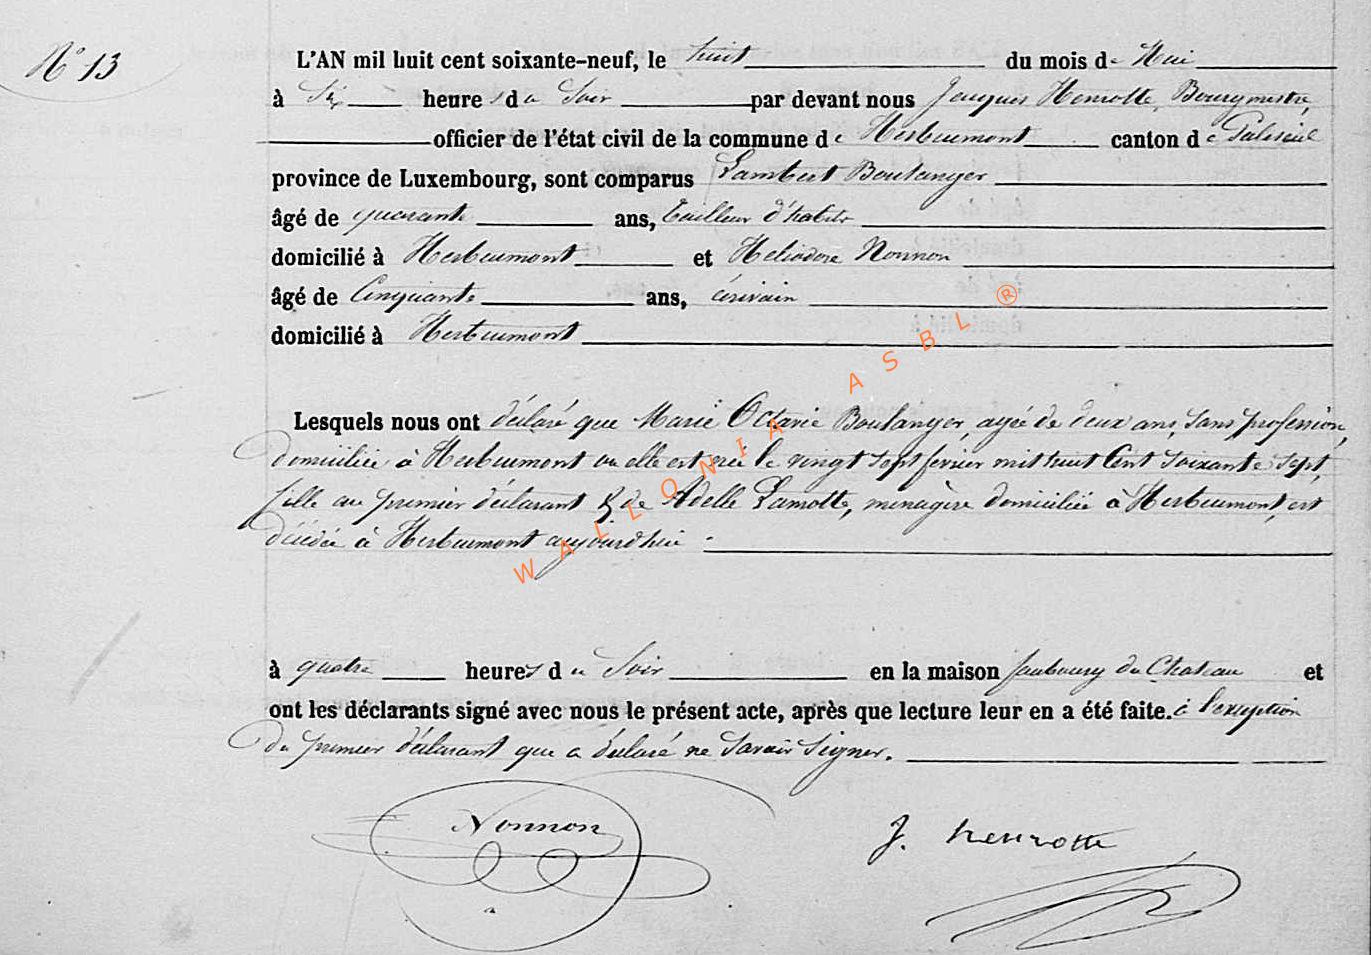 N° 13
L'AN mil huit cent soixante-neuf, le huit du mois de Mai
à Six heures du Soir par devant nous Jacques Henrotte, Bourgmestre,
officier de l'état civil de la commune de Herbeumont canton de Paliseul
province de Luxembourg, sont comparus Lambert Boulanger
âgé de quarante ans, tailleur d'habits
domicilié à Herbeumont et Héliodore Nonnon
âgé de Cinquante ans, écrivain
domicilié à Herbeumont
Lesquels nous ont déclaré que Marie Octavie Boulanger, agée de deux ans, sans profession,
domiciliée à Herbeumont ou elle est née le vingt sept fevrier mil huit Cent soixante sept,
fille au premier déclarant & de Adelle Lamotte, menagère domiciliée à Herbeumont, est
décédée à Herbeumont aujourdhui
à quatre heures du Soir en la maison faubourg du Chateau et
ont les déclarants signé avec nous le présent acte, après que lecture leur en a été faite. à l'exception
du premier déclarant que a déclaré ne Savoir Signer.
Nonnon J. henrotte
WALLONIA ASBL ®